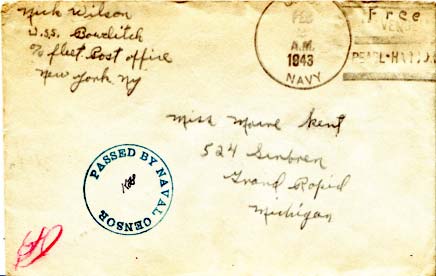 Nick Wilson
U.S.S. Bowditch
c/o fleet Post office
New York. Ny
FEB
A.M.
1943
NAVY
Free
PEARL-HA
PASSED BY NAVAL CENSOR
Miss Marie Kent
524
Grand Rapid
Michigan